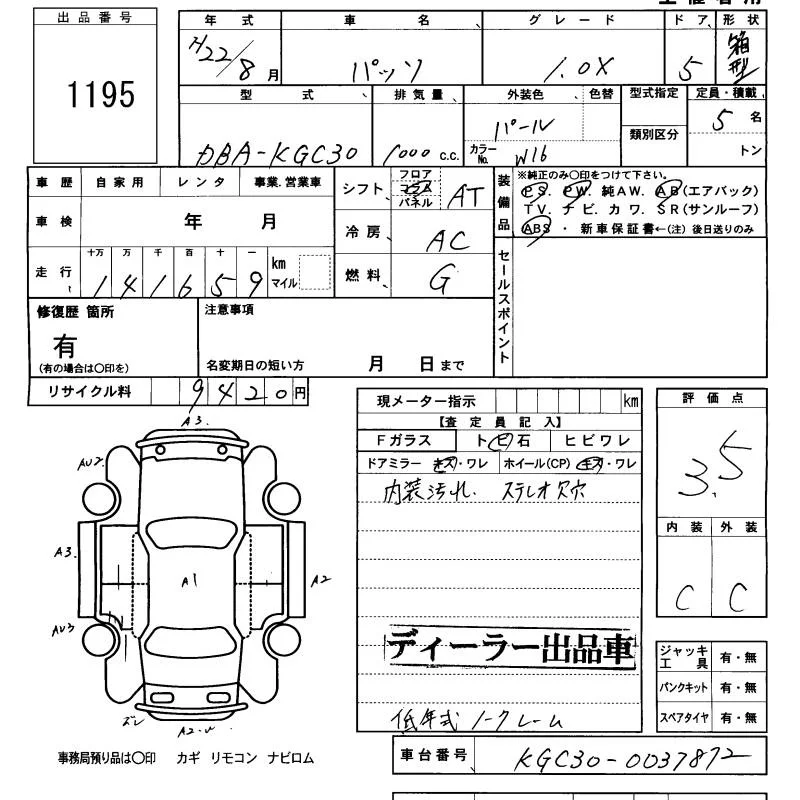 主催者用
出品番号
1195
年式 車名 グレード ドア 形状
H22/8月 パッソ 1.0X 5 箱型
型式 排気量 外装色 色替 型式指定 定員・積載
DBA-KGC30 1000 c.c. パール
カラーNo. W16
類別区分
5名
トン
車歴 自家用 レンタ 事業.営業車
車検 年 月
走行 十万 万 千 百 十 一
141659 km マイル
シフト フロア コラム パネル AT
冷房 AC
燃料 G
装備品 ※純正のみ〇印をつけて下さい。
PS. PW. 純AW. AB(エアバック)
TV. ナビ. カワ. SR(サンルーフ)
ABS・新車保証書←(注)後日送りのみ
セールスポイント
修復歴 箇所
有
(有の場合は〇印を)
注意事項
名変期日の短い方 月 日まで
リサイクル料 9420円
現メーター指示 km
【査定員記入】
Fガラス トビ石 ヒビワレ
ドアミラー キズ・ワレ ホイール(CP) キズ・ワレ
内装汚れ. ステレオ欠穴
ディーラー出品車
低年式 ノークレーム
評価点
3.5
内装 外装
C C
ジャッキ工具 有・無
パンクキット 有・無
スペアタイヤ 有・無
A3.
AU2
A3.
A1
A2
AU3
ズレ
事務局預り品は〇印 カギ リモコン ナビロム
車台番号 KGC30-0037872